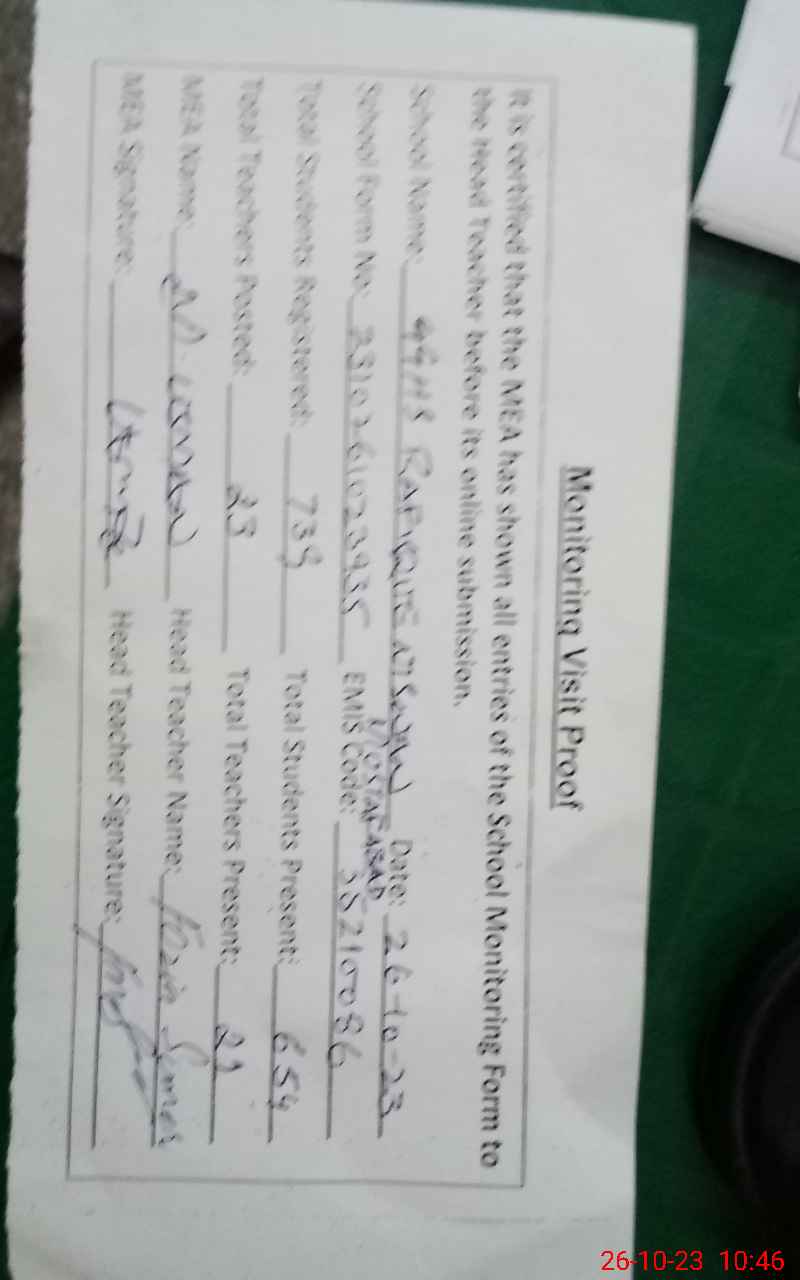 Monitoring Visit Proof
It is certified that the MEA has shown all entries of the School Monitoring Form to
the Head Teacher before its online submission.
School Name: GGHS RAFIQUE Date: 26-10-23
MOSTAFABAD
School Form No: EMIS Code: 38210086
Total Students Registered: 739 Total Students Present: 654
Total Teachers Posted: 23 Total Teachers Present: 21
MEA Name: M. USMAN Head Teacher Name:
MEA Signature: Head Teacher Signature:
26-10-23 10:46